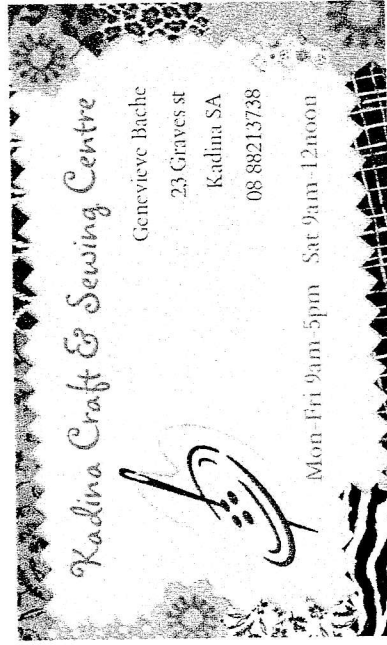 Kadina Craft & Sewing Centre
Genevieve Bache
23 Graves st
Kadina SA
08 88213738
Mon-Fri 9am-5pm Sat 9am-12noon